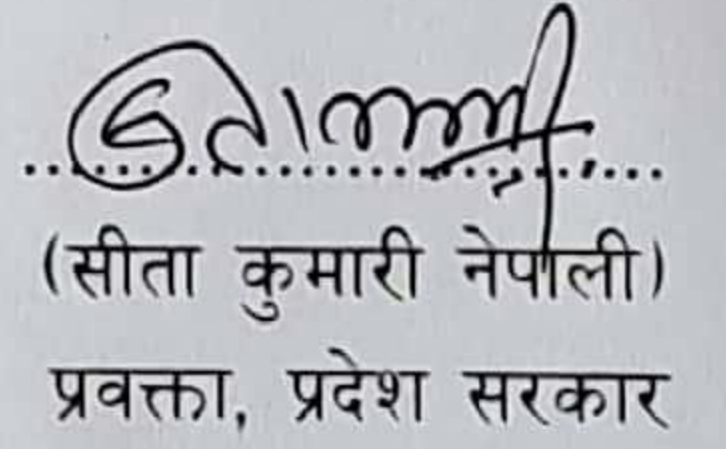 (सीता कुमारी नेपाली)
प्रवक्ता, प्रदेश सरकार